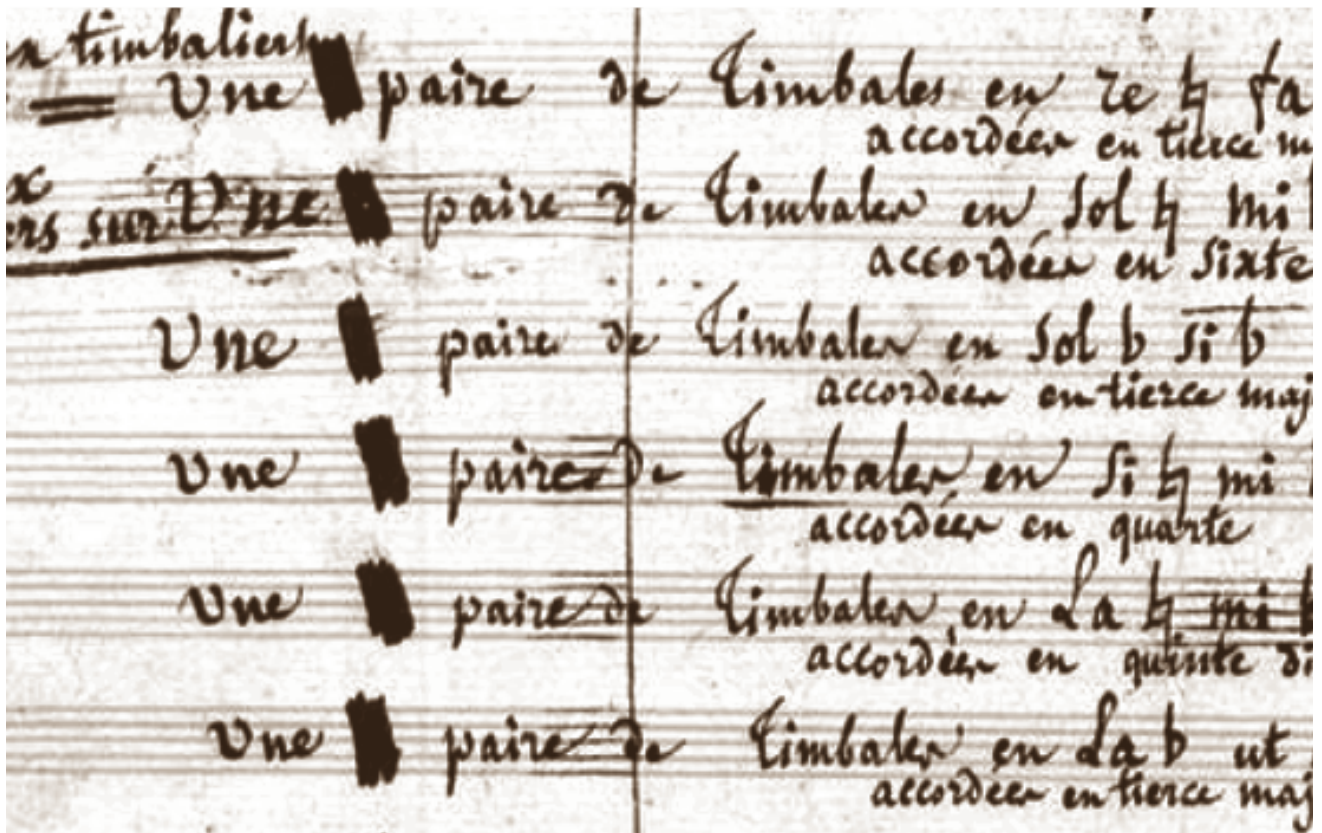 timbaliers
Une paire de Timbales en re ♮ fa
accordées en tierce m
x
ers sur Une paire de Timbales en sol ♮ mi
accordées en sixte
Une paire de Timbales en sol b si b
accordées en tierce maj
Une paire de Timbales en si ♮ mi
accordées en quarte
Une paire de Timbales en La ♮ mi b
accordées en quinte di
Une paire de Timbales en La b ut
accordées en tierce maj